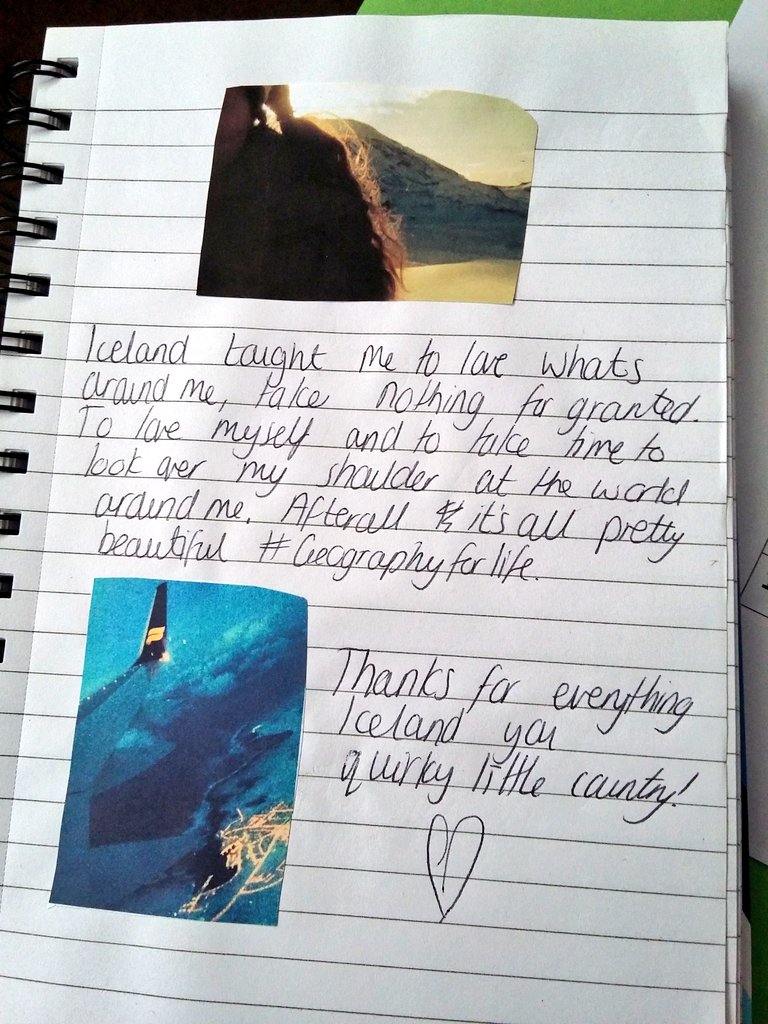 Iceland taught me to love whats
around me, take nothing for granted.
To love myself and to take time to
look over my shoulder at the world
around me. Afterall & it's all pretty
beautiful #Geographyforlife.
Thanks for everything
Iceland you
quirky little country!